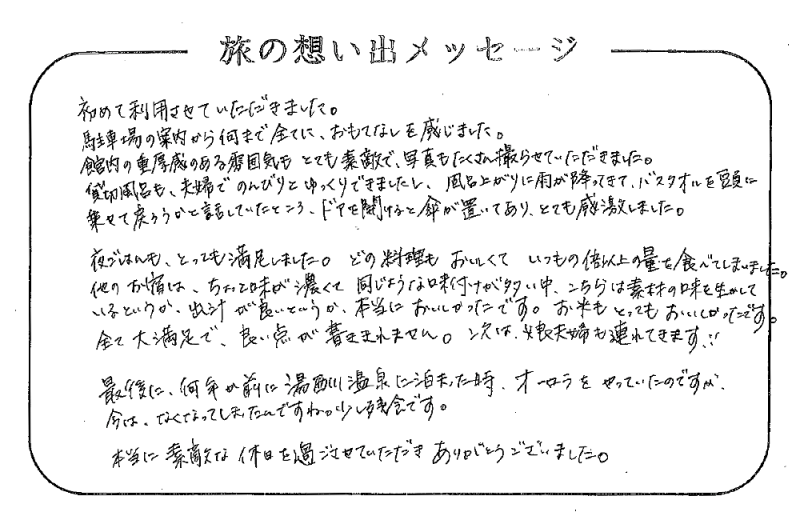 旅の想い出メッセージ
初めて利用させていただきました。
駐車場の案内から何まで全てに、おもてなしを感じました。
館内の重厚感のある雰囲気もとても素敵で、写真もたくさん撮らせていただきました。
貸切風呂も、夫婦でのんびりとゆっくりできましたし、風呂上がりに雨が降ってきて、バスタオルを頭に
乗せて戻ろうかと話していたところ、ドアを開けると傘が置いてあり、とても感激しました。
夜ごはんも、とっても満足しました。どの料理もおいしくていつもの倍以上の量を食べてしまいました。
他のお宿は、ちょっと味が濃くて同じような味付けが多い中、こちらは素材の味を生かして
いるというか、出汁が良いというか、本当においしかったです。お米もとってもおいしかったです。
全て大満足で、良い点が書ききれません。次は、娘夫婦も連れてきます!!
最後に、何年か前に湯西川温泉に泊まった時、オーロラをやっていたのですが、
今は、なくなってしまったんですね。少し残念です。
本当に素敵な休日を過ごさせていただきありがとうございました。